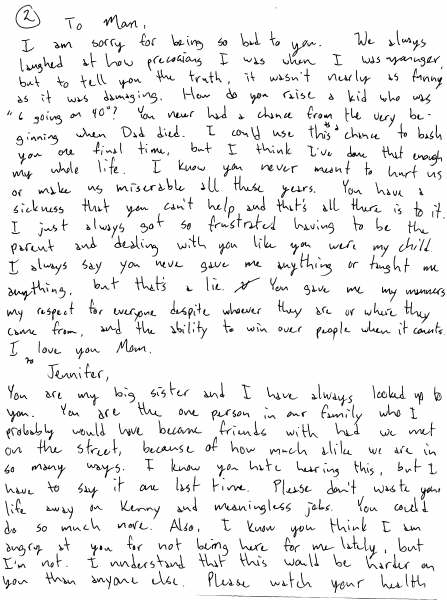 2
To Mom,
I am sorry for being so bad to you. We always
laughed at how precocious I was when I was younger,
but to tell you the truth, it wasn't nearly as funny
as it was damaging. How do you raise a kid who was
"6 going on 40"? You never had a chance from the very be-
ginning when Dad died. I could use this as a chance to bash
you one final time, but I think I've done that enough
my whole life. I know you never meant to hurt us
or make us miserable all these years. You have a
sickness that you can't help and that's all there is to it.
I just always got so frustrated having to be the
parent and dealing with you like you were my child.
I always say you neve gave me anything or taught me
anything, but that's a lie. You gave me my manners
my respect for everyone despite whoever they are or where they
came from, and the ability to win over people when it counts.
I love you Mom.
To Jennifer,
You are my big sister and I have always looked up to
you. You are the one person in our family who I
probably would have became friends with had we met
on the street, because of how much alike we are in
so many ways. I know you hate hearing this, but I
have to say it one last time. Please don't waste your
life away on Kenny and meaningless jobs. You could
do so much more. Also, I know you think I am
angry at you for not being here for me lately, but
I'm not. I understand that this would be harder on
you than anyone else. Please watch your health